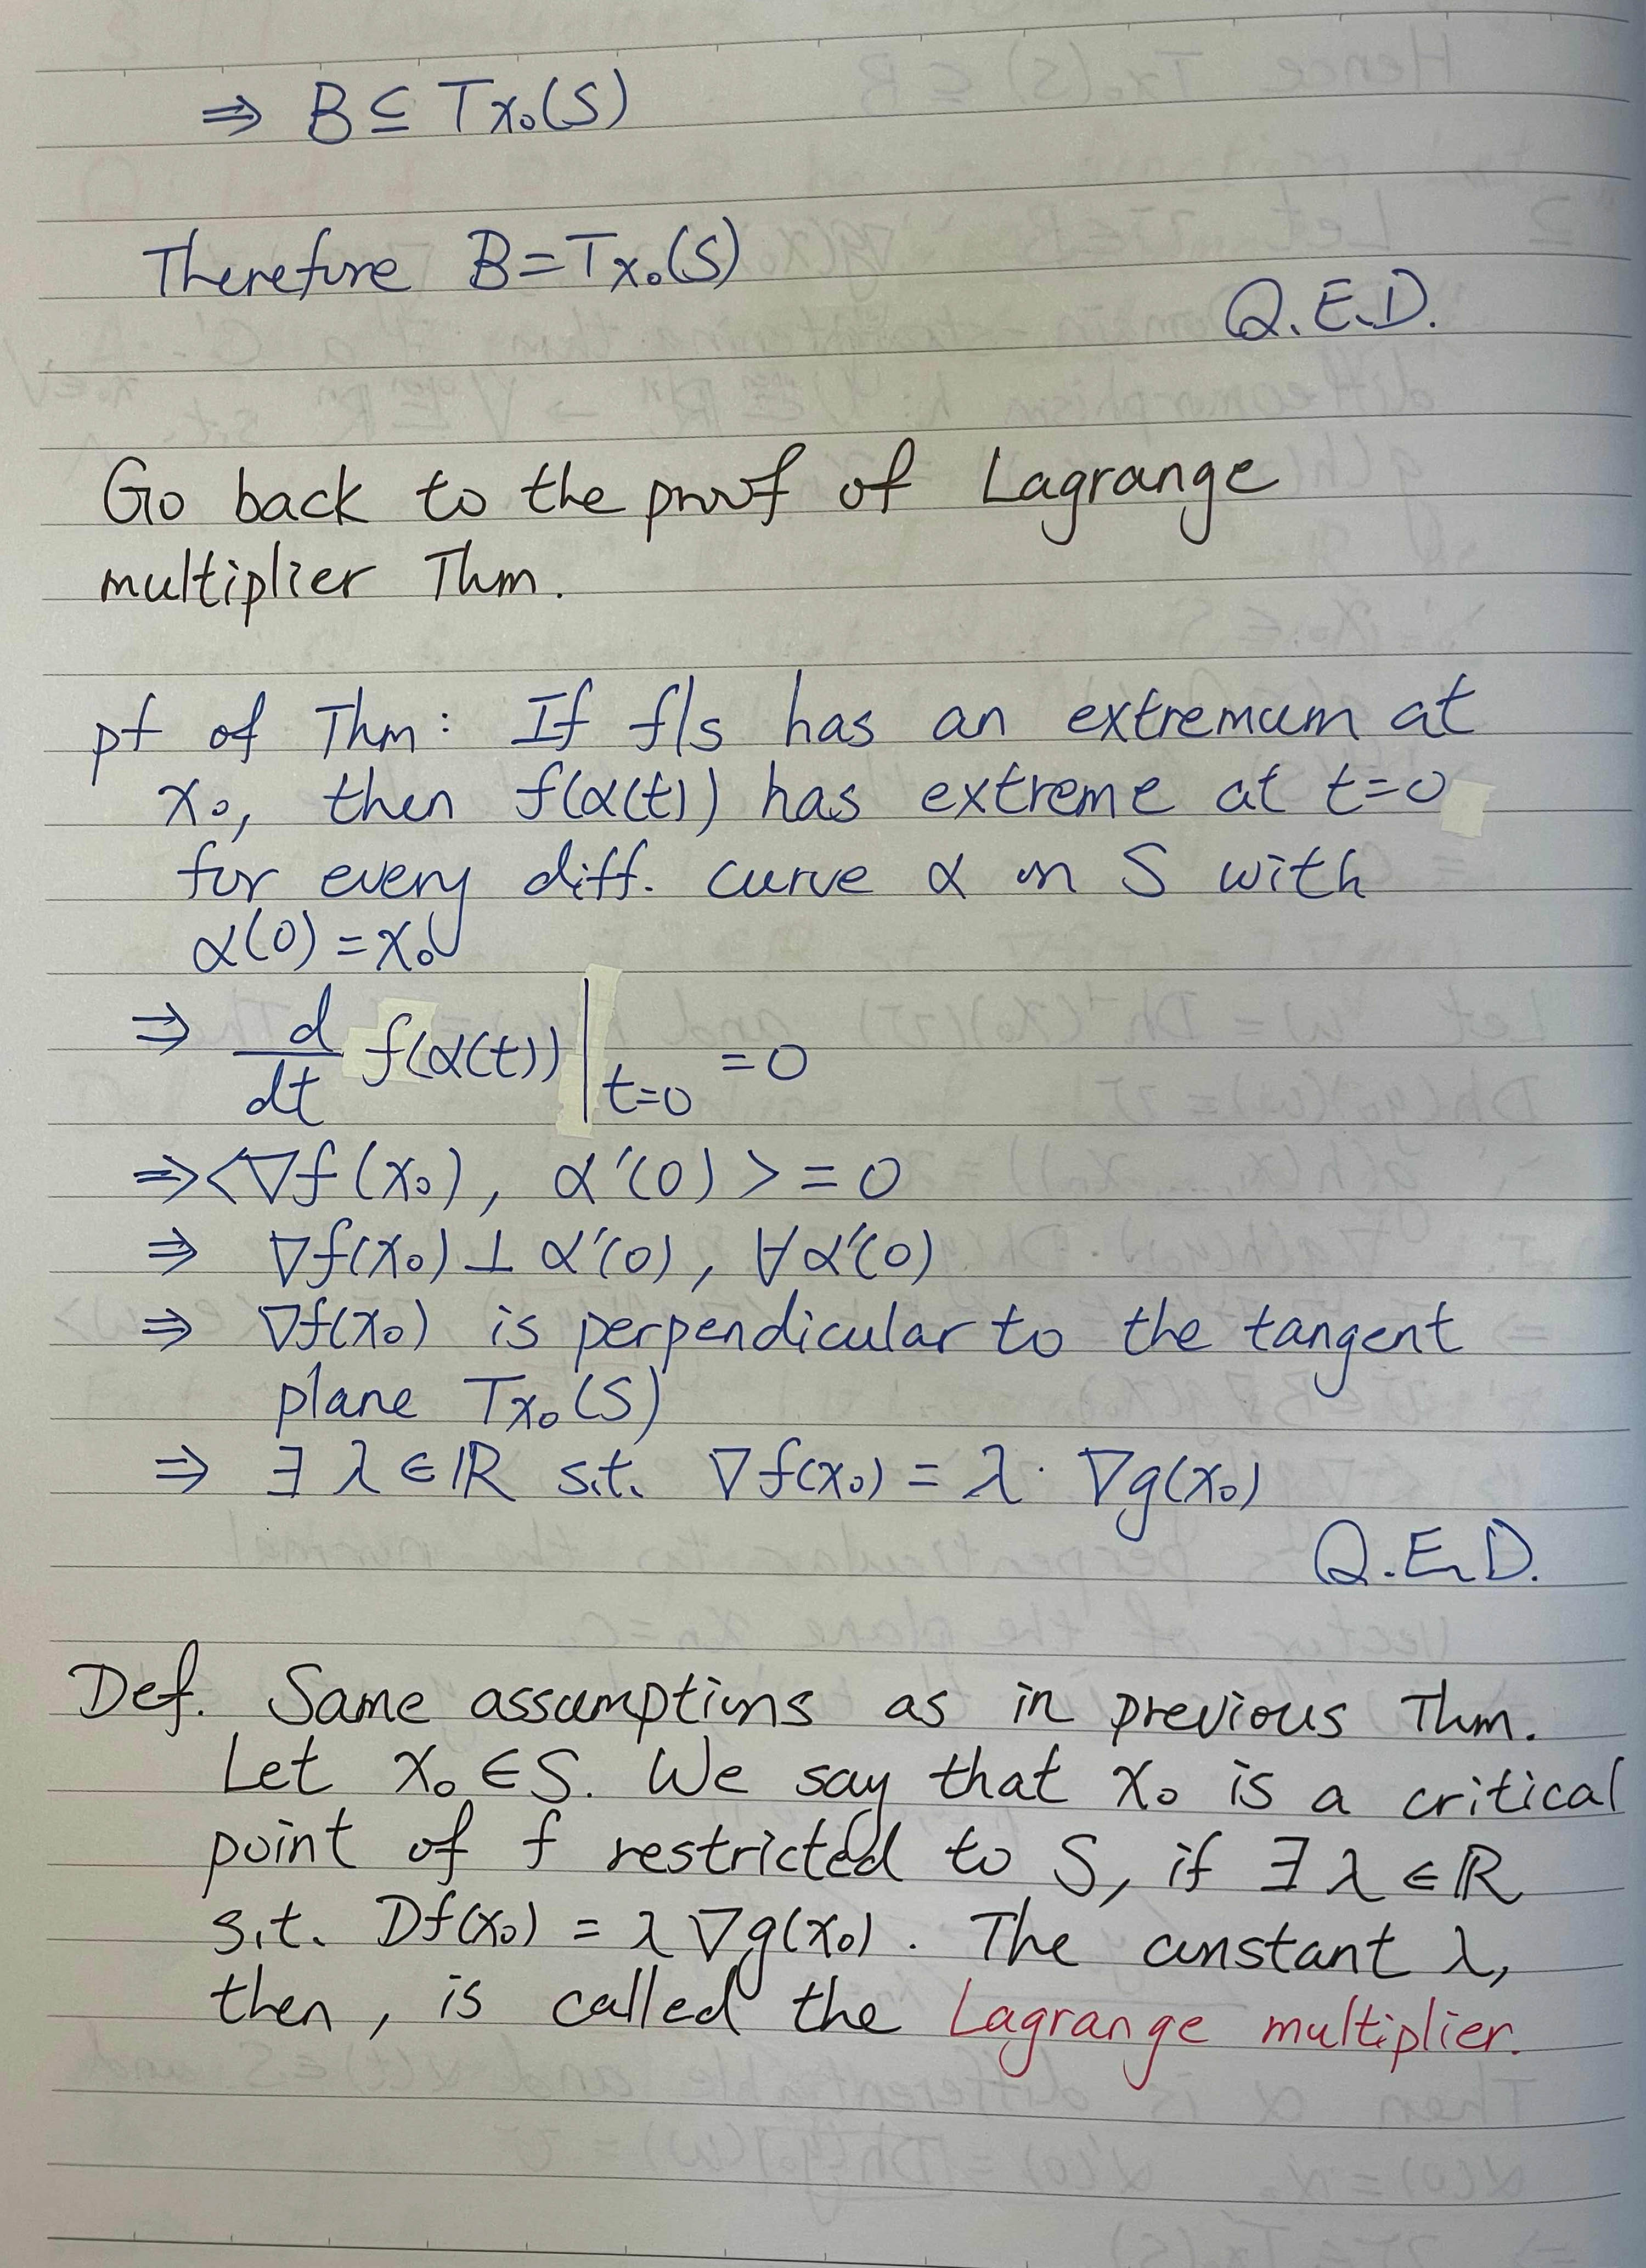 ⇒ B ⊆ Tx₀(S)
Therefore B = Tx₀(S)
Q.E.D.
Go back to the proof of Lagrange
multiplier Thm.
pf of Thm: If f|s has an extremum at
x₀, then f(α(t)) has extreme at t=0
for every diff. curve α on S with
α(0) = x₀
⇒ d/dt f(α(t))|t=0 = 0
⇒ <∇f(x₀), α'(0)> = 0
⇒ ∇f(x₀) ⊥ α'(0), ∀α'(0)
⇒ ∇f(x₀) is perpendicular to the tangent
plane Tx₀(S)
⇒ ∃ λ ∈ ℝ s.t. ∇f(x₀) = λ · ∇g(x₀)
Q.E.D.
Def. Same assumptions as in previous Thm.
Let x₀ ∈ S. We say that x₀ is a critical
point of f restricted to S, if ∃ λ ∈ ℝ
s.t. Df(x₀) = λ ∇g(x₀). The constant λ,
then, is called the Lagrange multiplier.